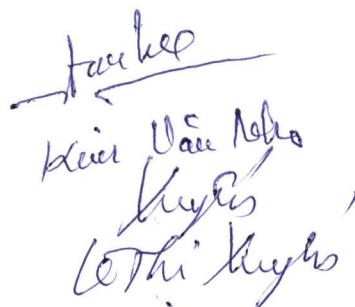 Kim Văn Nho
Xuyến
Lê Thị Xuyến